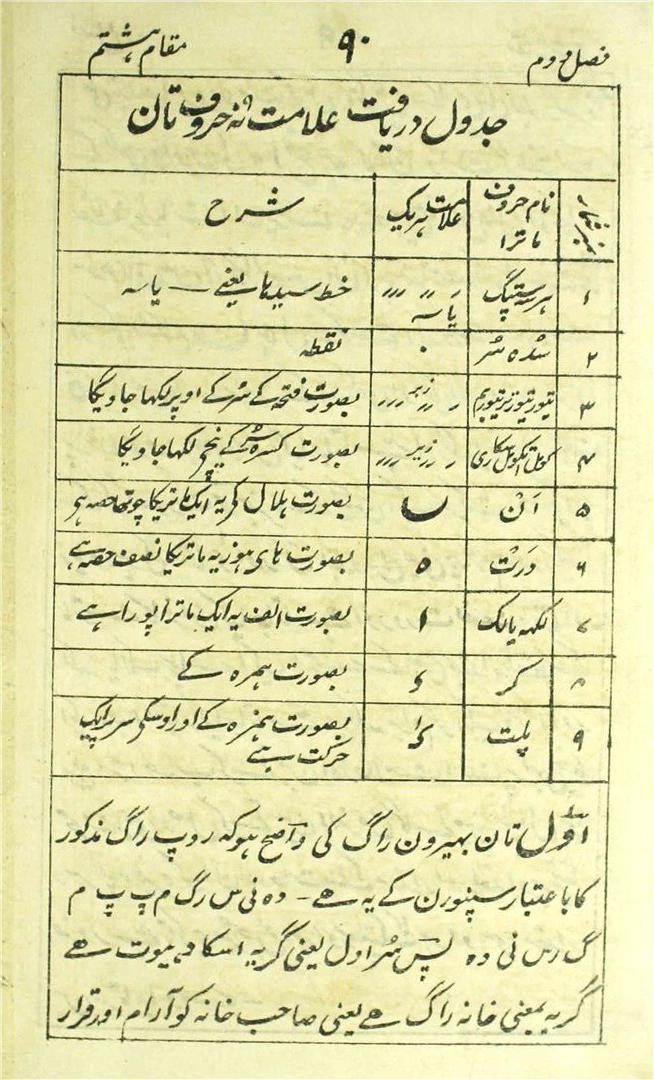 فصل دوم ۹۰ مقام ہشتم
جدول دریافت علامت نہ حروف تان
نمبر شمار نام حروف ماترا علامت ہریک شرح
۱ ہرسہ سپتک یاسہ خط سیدہا یعنے — یاسہ
۲ سُدہ سُر . نقطہ
۳ تیور تیوتر تیورتم زبر بصورت فتحہ کے سُر کے اوپر لکہا جاویگا
۴ کومل اتکومل سکاری زیر بصورت کسرہ سُر کے نیچے لکہا جاویگا
۵ اَنْ ں بصورت ہلال کریہ ایک ماتریکا چوتہا حصہ ہی
۶ دَرَتْ ٥ بصورت ہای ہوز یہ ماتریکا نصف حصہ ہے
۷ لکہہ یا لک ا بصورت الف یہ ایک ماترا پورا ہے
۸ گر ء بصورت ہمزہ کے
۹ پلت بصورت ہمزہ کے اور اوسکی سر پر ایک
حرکت ہے
اوّل تان بہیرون راگ کی واضح ہو کہ روپ راگ مذکور
کا باعتبار سنپورن کے یہ ہے - دہ نی س ر گ م پ پ م
گ ر س نی دہ پس سُر اول یعنی گریہ اسکا دہیوت ہے
گریہ بمعنی خانہ راگ ہے یعنی صاحب خانہ کو آرام اور قرار